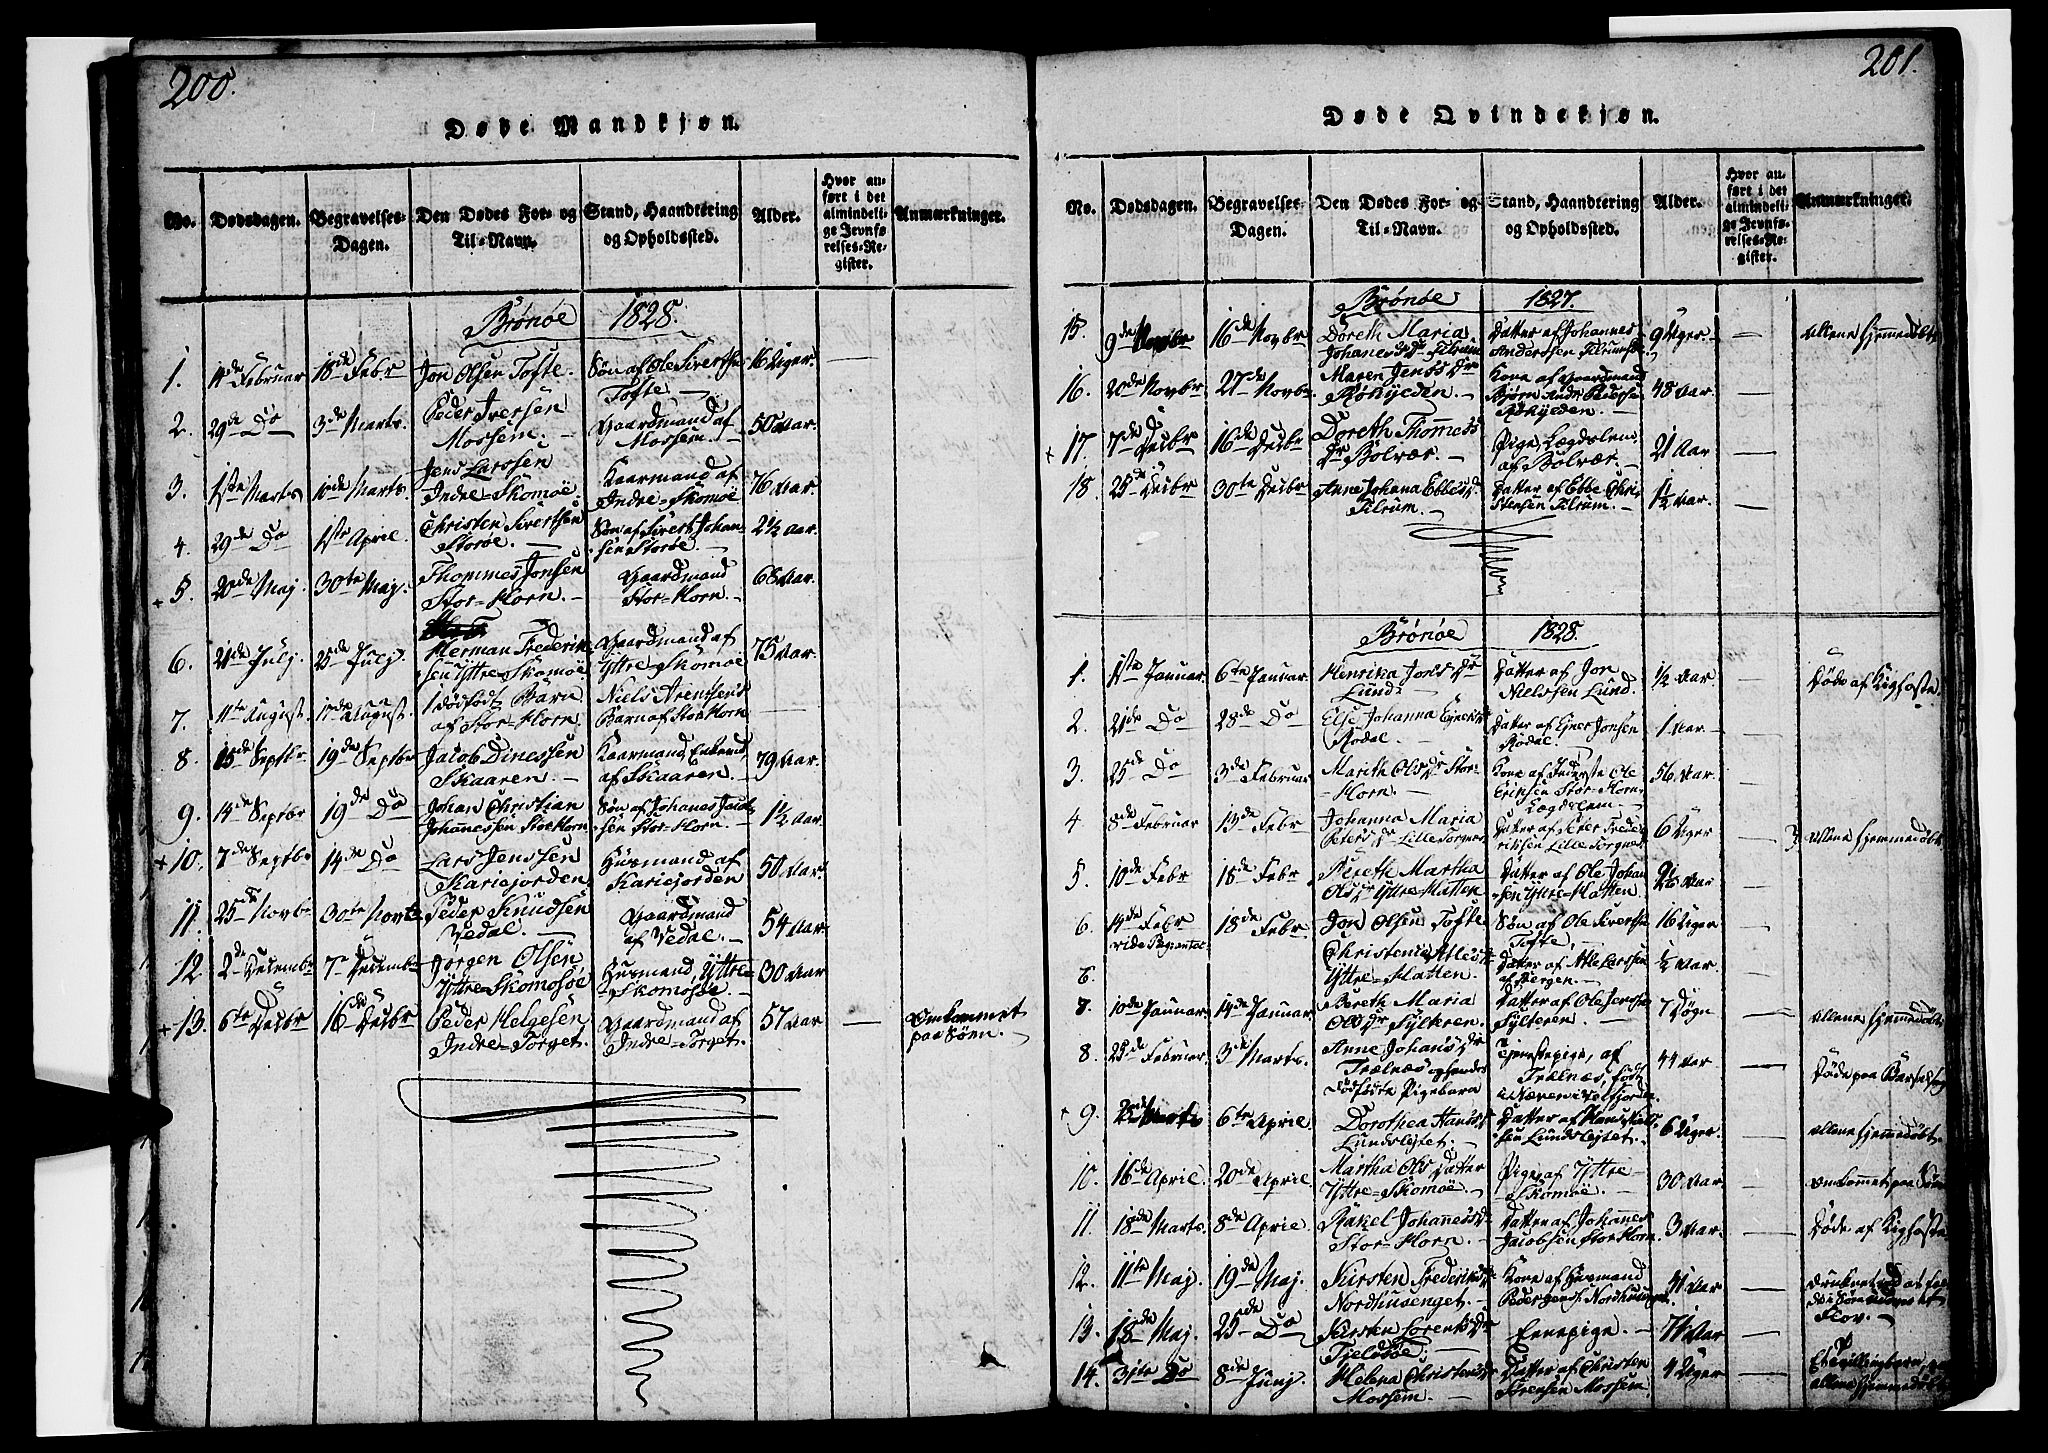 200.
Døde Mandkjøn.
No.
Dødsdagen.
Begravelses-
Dagen.
Den Dødes For- og
Til-Navn.
Stand, Haandtering
og Opholdssted.
Alder.
Hvor an-
ført i det
almindeli-
ge Jevnfø-
relses-Re-
gister.
Anmærkninger.
Brønøe 1828.
1. 11de Februar 18de Febr Jon Olsen Tofte. Søn af Ole Siverthsen Tofte. 16 Uger. —
2. 29de Do 3de Marts. Peder Iversen Mossem. Gaardmand af Mossem. 50 Aar.
3. 1ste Marts 10de Marts. Jens Larssen Indre-Skomøe. Kaarmand af Indre-Skomøe 76 Aar.
4. 29de Do 1ste April. Christen Siverthsen Storøe. Søn af Sivert Johansen Storøe. 2½ Aar.
+ 5. 20de Maj. 30te Maj. Thommes Jonsen Stor-Horn. Gaardmand Stor-Horn. 68 Aar.
6. 21de Julj. 25de Julj. Herman Frederiksen Yttre-Skomøe Gaardmand af Yttre-Skomøe 75 Aar.
7. 11te August 17de August. 1 dødfødt Barn af Stor-Horn. Niels Arentsens Barn af Stor Horn —
8. 15de Septbr 19de Septbr Jacob Dinessen Skaaren. Kaarmand, Enkemd af Skaaren. 79 Aar.
9. 14de Septbr 19de Do Johan Christian Johanessen Stor Horn Søn af Johanes Jacobsen Stor-Horn. 1½ Aar.
+ 10. 7de Septbr 14de Do Lars Jenssen Kariefjorden. Husmand af Kariefjorden 50 Aar.
11. 25de Novbr 30te Novbr Peder Knudsen Vedal. Gaardmand af Vedal. 54 Aar.
12 2de Decembr 7de Decembr Jørgen Olsen Yttre-Skomosøe Husmand, Yttre-Skomosøe. 30 Aar
+ 13. 6te Decbr 16de Decbr Peder Helgesen Indre-Torget. Gaardmand af Indre-Torget. 57 Aar — Omkommet paa Søen.
201.
Døde Qvindekjøn.
No.
Dødsdagen.
Begravelses-
Dagen.
Den Dødes For- og
Til-Navn.
Stand, Haandtering
og Opholdssted.
Alder.
Hvor an-
ført i det
almindeli-
ge Jevnfø-
relses-Re-
gister.
Anmærkninger.
Brønøe 1827.
15. 9de Novbr 16de Novbr Doreth Maria Johanesdr Tilrum Datter af Johannes Anderssen Tilrum. 9 Uger. — Allene hjemmedøbt
16. 20de Novbr 27de Novbr. Maren Jensdr Røkyeden. Kone af Gaardmand Bjørn Andr. Pedersen Røkyeden. 48 Aar. —
+ 17. 7de Decbr 16de Decbr Doreth Thomesdr Bolvær. Pige, Lægdslem af Bolvær. 21 Aar —
18. 25de Decbr 30te Decbr Anne Johana Ebbesdr Tilrum. Datter af Ebbe Christensen Tilrum. 1½ Aar. —
Brønøe 1828.
1. 1ste Januar 6te Januar. Henrika Jonsdr Lund. Datter af Jon Nielssen Lund. ½ Aar — Døde af Kighoste.
2. 21de Do 28de Do Else Johanna Ejnersdr Rodal. Datter af Ejner Jonsen Rodal. 1 Aar. —
3. 25de Do 3de Februar Marith Olsdr Stor-Horn. Kone af Inderste Ole Eriksen Stor-Horn, Lægdslem. 56 Aar —
4 8de Februar 13de Febr Johanna Maria Petersdr Lille Torgnes. Datter af Peter Frederiksen Lille Torgnes 6 Uger — Allene hjemmedøbt
5. 10de Febr 18de Febr. Bereth Martha Olsdr Yttre-Hatten Datter af Ole Johansen Yttre-Hatten. 2½ Aar —
6. 14de Febr 18de Febr. Jon Olsen Tofte Søn af Ole Siverthsen Tofte. 16 Uger. —
vide Pagina
6. Christenie Atlesdr Yttre-Hatten. Datter af Atle Larssen af Bergen. ½ Aar. —
7. 10de Januar. 14de Januar. Bereth Maria Olsdr Sylteren. Datter af Ole Jenssen Sylteren. 7 Døgn — Allene hjemmedøbt
8. 25de Februar 3de Marts. Anne Johansdr Trælnæs og hendes dødfødte Pigebarn Tjenestepige, af Trælnæs, født i Næven i Velfjorden. 44 Aar — Døde paa Barselseng
+ 9. 25de Marts 6te April. Dorothea Hansdr Lundslejtet. Datter af Hans Nielssen Lundslejtet. 6 Uger. — Allene hjemmedøbt.
10. 16de April. 20de April Martha Ols Datter Yttre-Skomøe. Pige af Yttre-Skomøe. 30 Aar. — Omkommet paa Søen
11. 18de Marts. 8de Aprie. Rakel Johannesdr Stor-Horn. Datter af Johannes Jacobsen Stor Horn. 3 Aar. — Døde af Kighoste
12. 11te Maj. 19de Maj. Kirsten Frederiksdr Nordhusenget. Kone af Husmand Nordhusenget. 41 Aar —
13. 18de Maj. 25de Do Kirsten Lorentsdr Tjeldøe. Ennepige. 74 Aar —
14. 31te Do 8de Junj. Helena Christensdr Mossem. Datter af Christen Mossem. 4 Uger — Et Tvillingbarn, allene hjemmedøbt